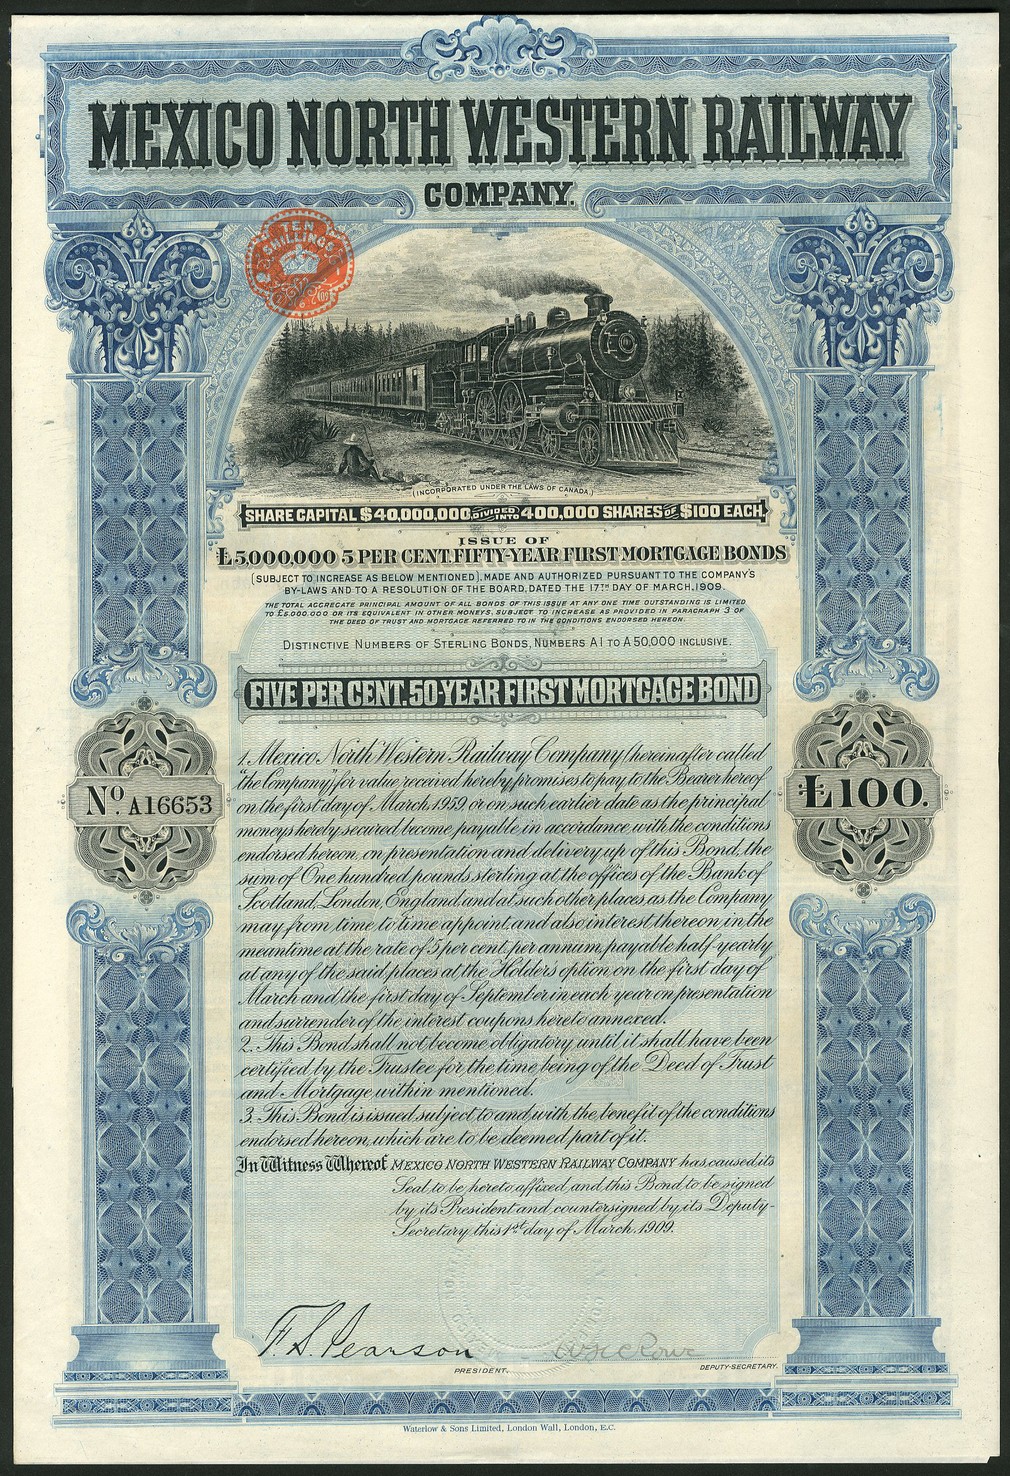 MEXICO NORTH WESTERN RAILWAY
COMPANY.
TEN
SHILLINGS
(INCORPORATED UNDER THE LAWS OF CANADA.)
SHARE CAPITAL $40,000,000 DIVIDED INTO 400,000 SHARES OF $100 EACH
ISSUE OF
£5,000,000 5 PER CENT. FIFTY-YEAR FIRST MORTGAGE BONDS
(SUBJECT TO INCREASE AS BELOW MENTIONED), MADE AND AUTHORIZED PURSUANT TO THE COMPANY'S
BY-LAWS AND TO A RESOLUTION OF THE BOARD, DATED THE 17TH DAY OF MARCH, 1909.
THE TOTAL AGGREGATE PRINCIPAL AMOUNT OF ALL BONDS OF THIS ISSUE AT ANY ONE TIME OUTSTANDING IS LIMITED
TO £5,000,000 OR ITS EQUIVALENT IN OTHER MONEYS, SUBJECT TO INCREASE AS PROVIDED IN PARAGRAPH 3 OF
THE DEED OF TRUST AND MORTGAGE REFERRED TO IN THE CONDITIONS ENDORSED HEREON.
DISTINCTIVE NUMBERS OF STERLING BONDS, NUMBERS A1 TO A50,000 INCLUSIVE.
FIVE PER CENT. 50-YEAR FIRST MORTGAGE BOND
No. A16653
£100.
1. Mexico North Western Railway Company (hereinafter called
"the Company") for value received hereby promises to pay to the Bearer hereof
on the first day of March 1959, or on such earlier date as the principal
moneys hereby secured become payable in accordance with the conditions
endorsed hereon, on presentation and delivery up of this Bond, the
sum of One hundred pounds sterling at the offices of the Bank of
Scotland, London, England and at such other places as the Company
may from time to time appoint, and also interest thereon in the
meantime at the rate of 5 per cent. per annum, payable half-yearly
at any of the said places at the Holder's option on the first day of
March and the first day of September in each year on presentation
and surrender of the interest coupons hereto annexed.
2. This Bond shall not become obligatory until it shall have been
certified by the Trustee for the time being of the Deed of Trust
and Mortgage within mentioned.
3. This Bond is issued subject to and with the benefit of the conditions
endorsed hereon, which are to be deemed part of it.
In Witness Whereof MEXICO NORTH WESTERN RAILWAY COMPANY has caused its
Seal to be hereto affixed and this Bond to be signed
by its President and countersigned by its Deputy-
Secretary this 1st day of March, 1909.
F. S. Pearson
PRESIDENT.
DEPUTY-SECRETARY.
Waterlow & Sons Limited, London Wall, London, E.C.